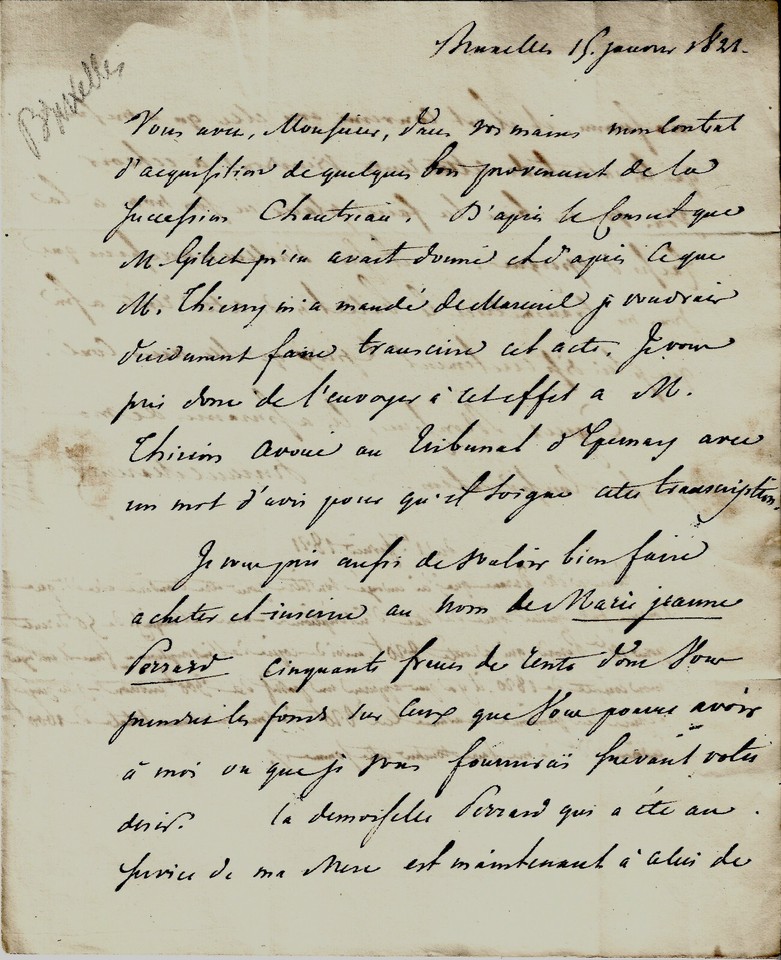 Bruxelles 15. janvier 1821.
Bruxelles
Vous avez, Monsieur, dans vos mains mon contrat
d'acquisition de quelques bois provenant de la
succession Chautreau. D'après le Conseil que
M. Gibert m'en avait donné et d'après ce que
M. Thierry m'a mandé de Mareuil je voudrais
décidament faire transcrire cet acte. Je vous
prie donc de l'envoyer à cet effet a M.
Thirion avoué au tribunal d'Epernay avec
un mot d'avis pour qu'il soigne cette transcription.
Je vous prie aussi de vouloir bien faire
acheter et inscrire au nom de Marie jeanne
Perrard cinquante francs de rente dont Vous
prendrez les fonds sur ceux que Vous pouvez avoir
à moi ou que je vous fournirai suivant votre
désir. la demoiselle Perrard qui a été au
service de ma Mere est maintenant à celui de